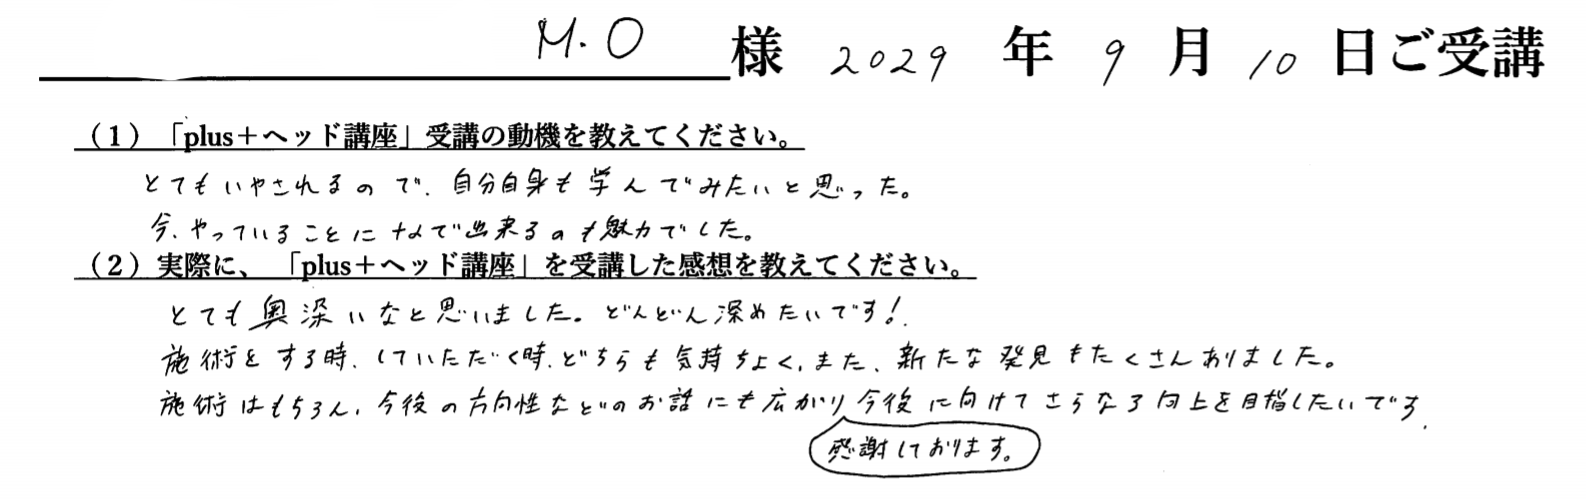 M.O 様 2029 年 9 月 10 日ご受講
（1）「plus＋ヘッド講座」受講の動機を教えてください。
とてもいやされるので、自分自身も学んでみたいと思った。
今、やっていることに＋αで出来るのも魅力でした。
（2）実際に、「plus＋ヘッド講座」を受講した感想を教えてください。
とても奥深いなと思いました。どんどん深めたいです!
施術をする時、していただく時、どちらも気持ちよく、また、新たな発見もたくさんありました。
施術はもちろん、今後の方向性などのお話にも広がり今後に向けてさらなる向上を目指したいです。
感謝しております。